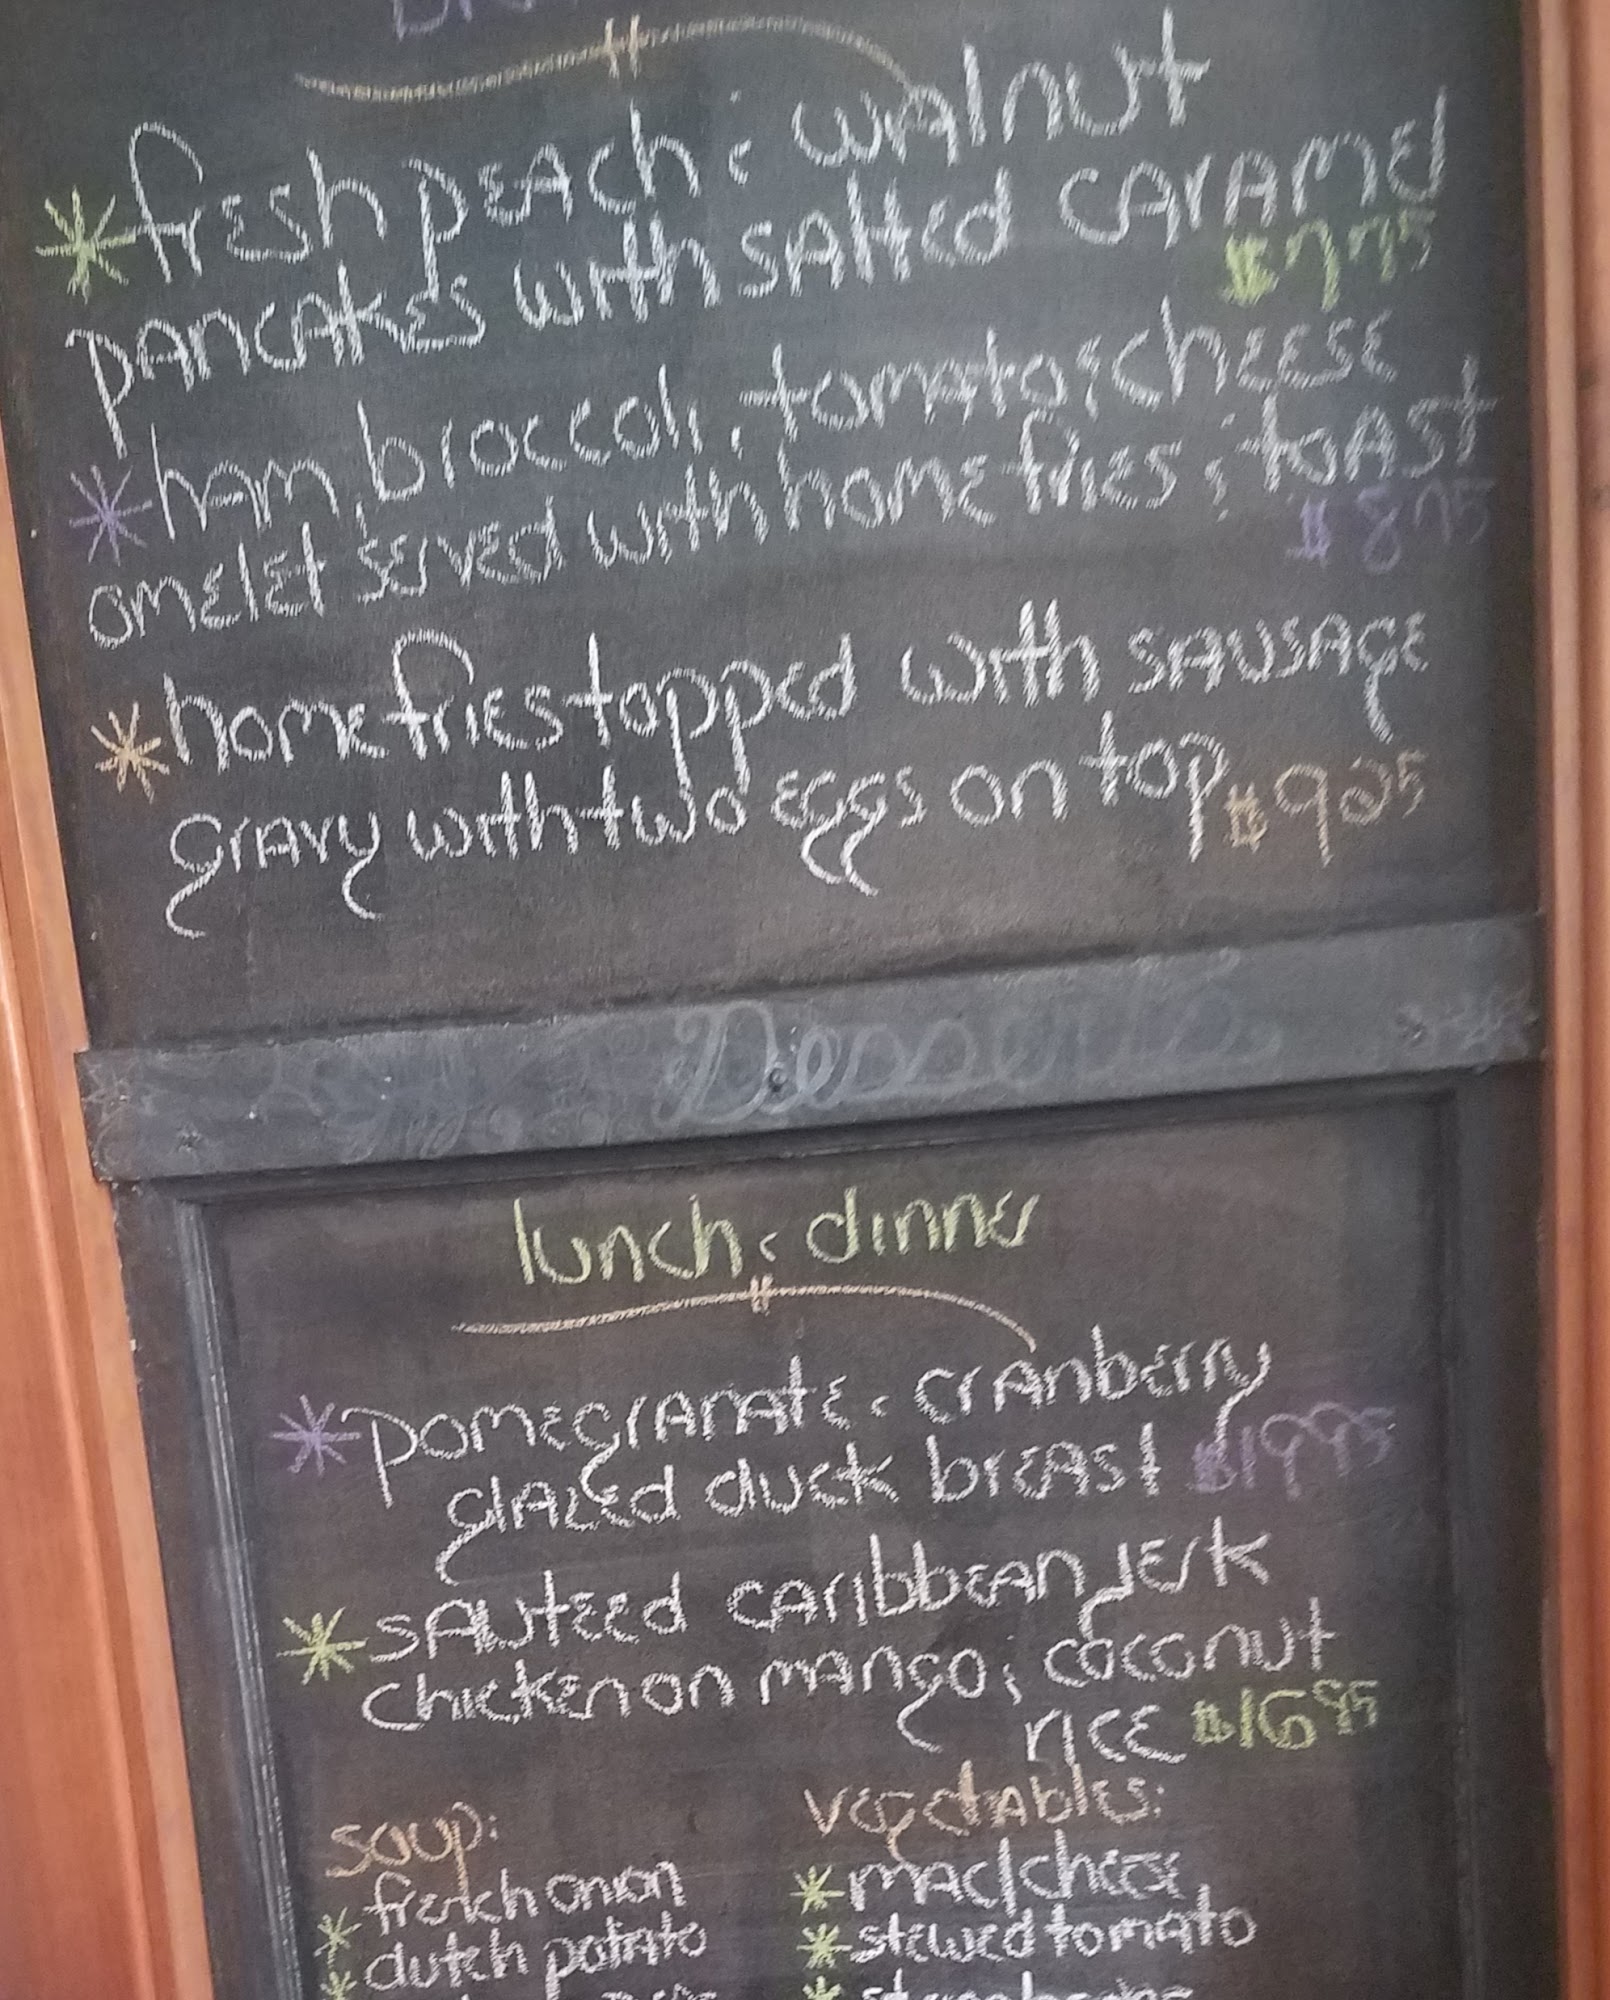 fresh peach & walnut
pancakes with salted caramel
$7.75
ham, broccoli, tomato & cheese
omelet served with home fries & toast
$8.75
home fries topped with sausage
gravy with two eggs on top $9.25
Desserts
lunch & dinner
pomegranate & cranberry
glazed duck breast $19.95
sauteed caribbean jerk
chicken on mango & coconut
rice $16.95
soup:
french onion
dutch potato
vegetables:
mac/cheese
stewed tomato